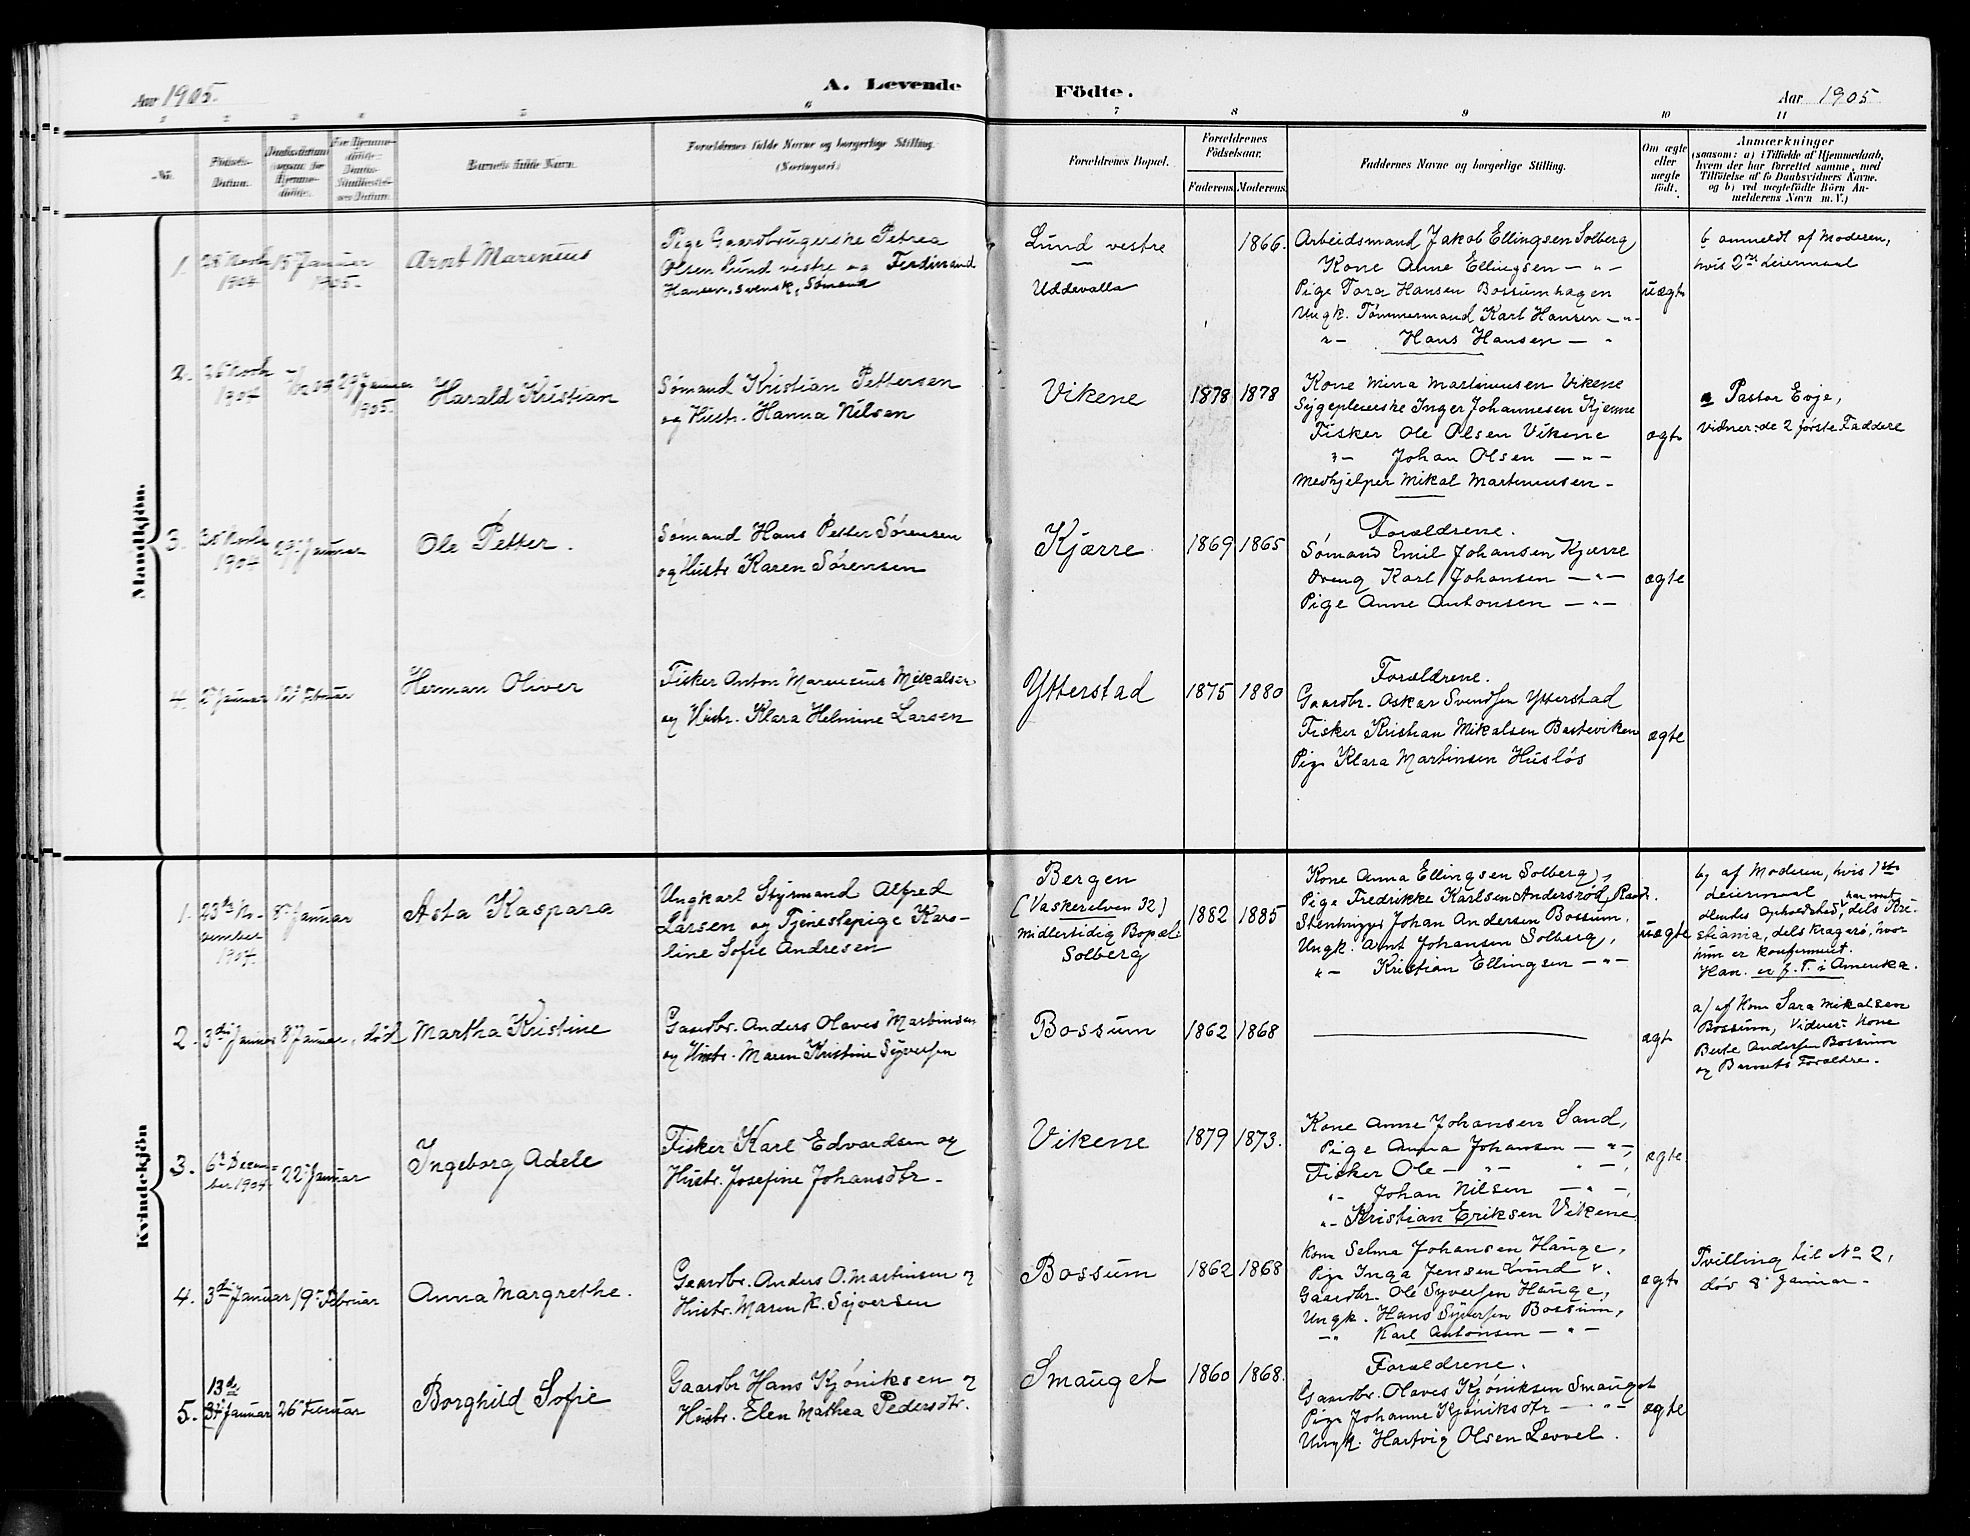 Aar 1905.
A. Levende Födte.
Aar 1905
1 2 3 4 5 6 7 8 9 10 11
No.
Fødsels-
Datum.
Barnets fulde Navn.
Forældrenes fulde Navne og borgerlige Stilling.
(Næringsvei)
Forældrenes Bopæl.
Forældrenes
Födselsaar.
Faderens. Moderens.
Faddernes Navne og borgerlige Stilling.
Om ægte
eller
uægte
født.
Anmærkninger
(saasom: a) i Tilfælde af Hjemmedaab,
hvem der har forrettet samme, med
Tilföielse af to Daabsvidners Navne.
og b) ved uægtefödte Börn An-
melderens Navn m. V.)
Mandkjön.
1.
1904
15 Januar
1905.
Arnt Marenius
Pige Gaardbrugerske Petrea
Olsen Lund vestre og Ferdinand
Hansen, svensk, Sømand
Lund vestre
Uddevalla
1866.
Arbeidsmand Jakob Ellingsen Solberg
Kone Anne Ellingsen — " —
Pige Tora Hansen Bossumhagen
Ungk. Tømmermand Karl Hansen — " —
" — Hans Hansen — "
uægte
b anmeldt af Moderen,
hvis 2det Leiermaal
2.
1904
29 Januar
1905.
Harald Kristian
Sømand Kristian Pettersen
og Hustr. Hanna Nilsen
Vikene
1878 1878
Kone Mina Martinusen Vikene
Sygepleierske Inger Johannesen Kjerre
Fisker Ole Olsen Vikene
" — Johan Olsen — " —
Medhjelper Mikal Martinusen —
ægte
a Pastor Evje,
Vidner: de 2 første Faddere
3.
1904
29 Januar
Ole Petter.
Sømand Hans Petter Sørensen
og Hustr Karen Sørensen
Kjærre
1869 1865
Forældrene.
Sømand Emil Johansen Kjærre
Dreng Karl Johansen — " —
Pige Anne Antonsen — " —
ægte
4.
2 Januar
12 Februar
Herman Oliver
Fisker Anton Marenius Mikalsen
og Hustr. Klara Helmine Larsen
Ytterstad
1875 1880
Forældrene.
Gaardbr. Oskar Svendsen Ytterstad
Fisker Kristian Mikalsen Basteviken
Pige Klara Martinsen Husløs
ægte
Kvindekjön
1.
23de No-
vember
1904
8 Januar
Asta Kaspara
Ungkarl Styrmand Alfred
Larsen og Tjenestepige Karo-
line Sofie Andresen
Bergen
(Vaskerelven 32)
Midlertidig Bopæl:
Solberg
1882 1885
Kone Anna Ellingsen Solberg,
Pige Fredrikke Karlsen Andersrød,
Stenhugger Johan Andersen Bossum,
Ungk. Arnt Johansen Solberg,
" — Kristian Ellingsen — " —
uægte
b, af Moderen, hvis 1ste
Leiermaal
har havt
Opholdsted, dels Kri-
stiania, dels Kragerø, hvor
hun er konfirmeret.
Han er f. T. i Amerika.
2.
3di Januar
8 Januar, død
Martha Kristine
Gaardbr. Anders Olaves Martinsen
og Hustr. Maren Kristine Syversen
Bossum
1862 1868
ægte
a) af Kone Sara Mikalsen
Bossum, Vidner: Kone
Berte Andersen Bossum
og Barnets Forældre.
3.
6te Decem-
ber 1904
22 Januar
Ingeborg Adele
Fisker Karl Edvardsen og
Hustr. Josefine Johansdtr.
Vikene
1879 1873.
Kone Anne Johansen Sand,
Pige Anna Johansen — " —,
Fisker Ole — " — " —,
" — Johan Nilsen — " —,
" — Kristian Eriksen Vikene
ægte.
4.
3di Januar
19 Februar
Anna Margrethe.
Gaardbr. Anders O. Martinsen og
Hustr. Maren K. Syversen
Bossum
1862 1868
Kone Selma Johansen Hauge,
Pige Inga Jensen Lund v.
Gaardbr. Ole Syversen Hauge,
Ungk. Hans Syversen Bossum,
— " Karl Antonsen — " —
ægte
Tvilling til No 2,
død 8 Januar.
5.
13de
Januar
26 Februar
Borghild Sofie
Gaardbr Hans Kjøniksen og
Hustr. Elen Mathea Pedersdtr.
Smauget
1860 1868.
Forældrene.
Gaardbr. Olaves Kjøniksen Smauget
Pige Johanne Kjøniksdtr — " —
Ungk. Hartvig Olsen Levvel.
ægte